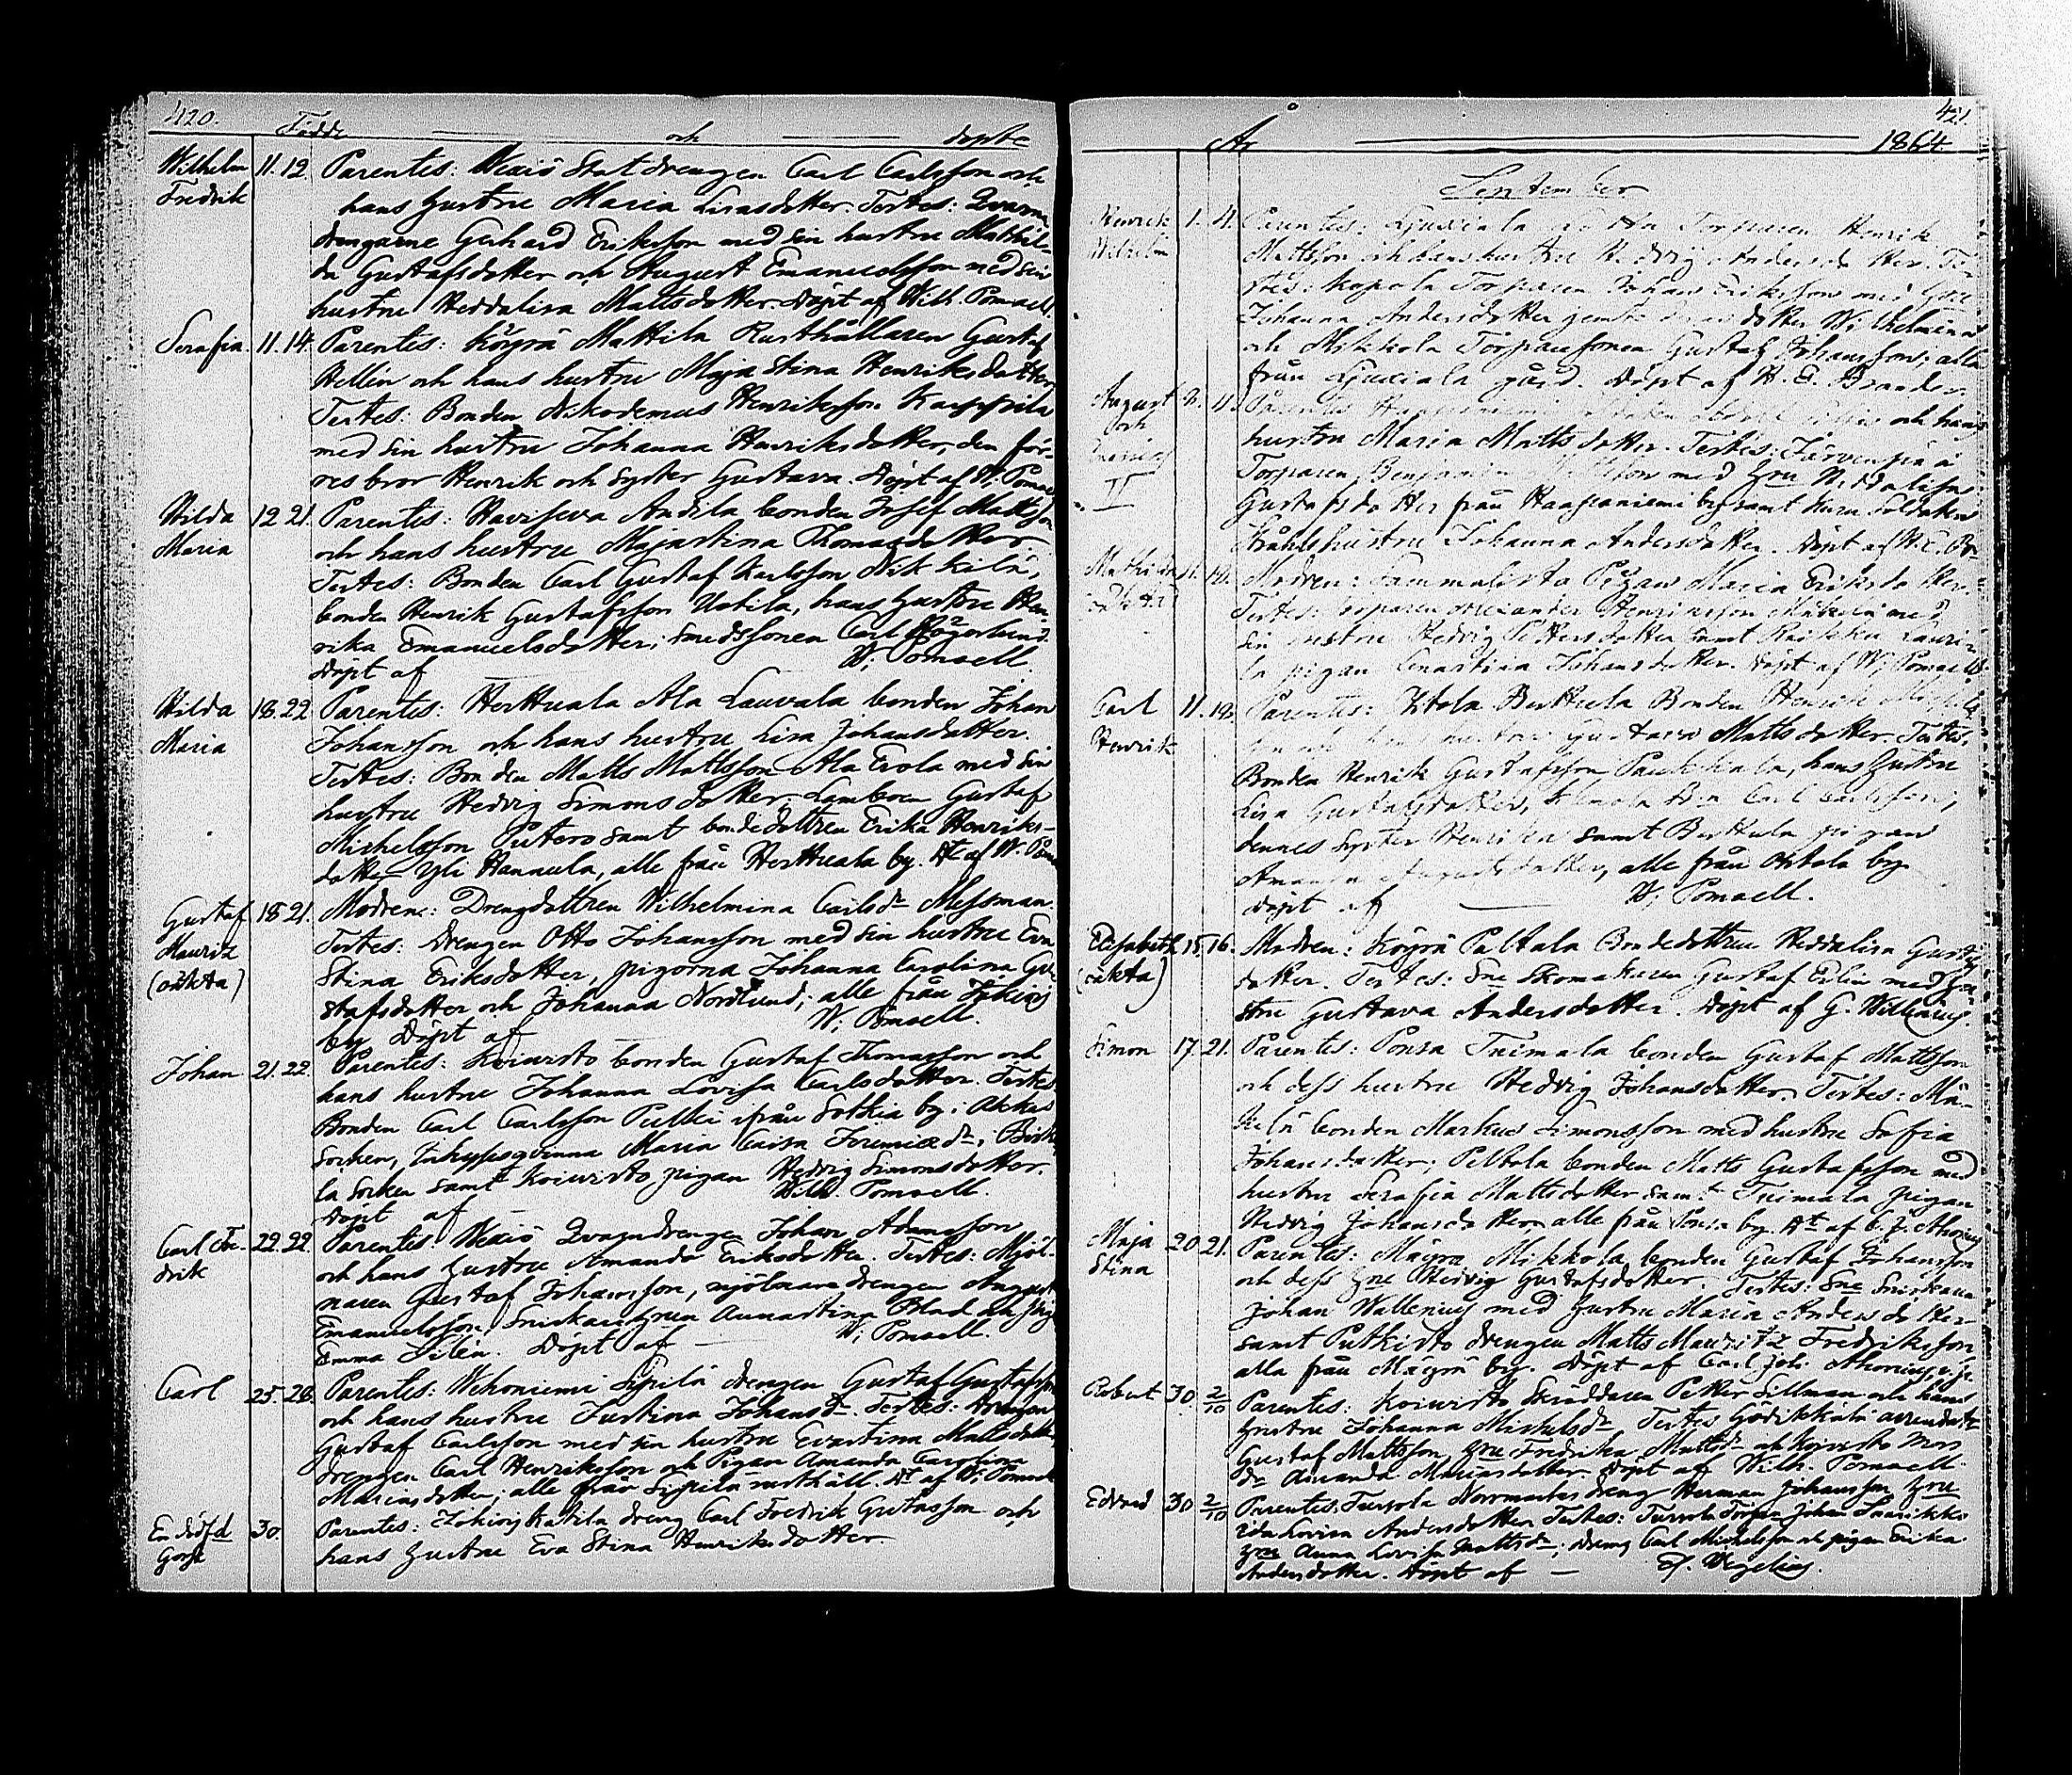 420.
Födde och döpte
Wilhelm 11. 12. Parentes: Wexiö Statdrengen Carl Carlsson och
Fredrik hans hustru Maria Lisasdotter. Testes: Qvarn
drengarne Gerhard Eriksson med sin hustru Mathil-
da Gustafsdotter och August Emanuelsson med sin
hustru Heddalisa Mattsdotter. Döpt af Wilh. Pomoell.
Serafia. 11. 14. Parentes: Köyrä Mattila Rusthållaren Gustaf
Hellin och hans hustru Maja Stina Henriksdotter
Testes: Bonden Nikodemus Henriksson Kauppila
med sin hustru Johanna Henriksdotter, den för-
res bror Henrik och syster Gustava. Döpt af W. Pomoell
Hilda 12. 21. Parentes: Haviseva Andila bonden Josef Mattsson
Maria och hans hustru Majastina Thomasdotter
Testes: Bonden Carl Gustaf Karlsson Nikkilä,
bonden Henrik Gustafsson Uotila, hans hustru Hen-
rika Emanuelsdotter; smedssonen Carl
Döpt af W; Pomoell.
Hilda 18. 22. Parentes: Herttuala Ala Lauvala bonden Johan
Maria Johansson och hans hustru Lisa Johansdotter.
Testes: Bonden Matts Mattsson Ala Erola med sin
hustru Hedvig Simonsdotter, Landboen Gustaf
Michelsson Putero samt bondedottren Erika Henriks-
dotter Yli Hannula, alle från Herttuala by. Dt af W. Pom
Gustaf 18. 21. Modren: Drengdottren Wilhelmina Carlsdr Messman.
Mauritz Testes: Drengen Otto Johansson med sin hustru Eva
(oäkta) Stina Eriksdotter, pigorna Johanna Carolina Gu-
stafsdotter och Johanna Nordlund; alle från Jokiois
by Döpt af W; Pomoell.
Johan 21. 22. Parentes: Koivisto bonden Gustaf Thomasson och
hans hustru Johanna Lovisa Carlsdotter. Testes
Bonden Carl Carlsson Pulli ifrån Sotkia by i Akkas
socken, Inhyssqvinna Maria Caisa Jeremiædr, i Birk
la socken samt Koivisto pigan Hedvig Simonsdotter.
Döpt af Wilh. Pomoell.
Carl Fre- 22. 22. Parentes: Wexiö Qvarndrengen Johan Adamsson
drik och hans hustru Amanda Eriksdotter. Testes: Mjöl-
naren Gustaf Johansson, mjölnaredrengen August
Emanuelsson, Snickarehrun Annastina
Emma Silén. Döpt af W; Pomoell.
Carl 25. 26. Parentes: Wehoniemi Sipilä drengen Gustaf Gustafsson
och hans hustru Justina Johansdr. Testes: Drengen
Gustaf Carlsson med sin hustru Evastina Mattsdotter,
drengen Carl Henriksson och Pigan Amanda Carolina
Mariasdotter; alle från Sipilä rusthåll. Dt af W; Pomoell
En dödfd 30. Parentes: Jokiois Katila dreng Carl Fredrik Gustafsson och
Gosse hans hustru Eva Stina Henriksdotter.
421.
År 1864.
September
Henrik 1. 4. Parentes: Torparen Henrik
Wilhelm Mattsson och hans hustru Hedvig Andersdotter. Tes-
tes: Torparen Johan Eriksson med hru
Johanna Andersdotter jemte dotter Wilhelmina
och Mikkola Torparesonen Gustaf Johansson; alla
från Liuxiala gård. Döpt af H. G. Brander.
August 2. 11. Parentes och hans
och hustru Maria Mattsdotter. Testes: Järvenpää
Torparen Benjamin med hru Heddalisa
II Gustafsdotter från Haapaniemi by samt Kuru Soldaten
hustru Johanna Andersdotter. Döpt af
Mathilda 11. 12. Modren: Pigan Maria Eriksdotter.
oäkta Testes: Torparen Alexander Henriksson Mäkelä med
sin hustru Hedvig Pettersdotter samt Lauri-
la pigan Annastina Johansdotter. Döpt af W; Pomoell.
Carl 11. 12. Parentes: Bonden Henrik
Henrik son och hans hustru Gustava Mattsdotter. Testes:
Bonden Henrik Gustafsson Paukkala, hans hustru
Lisa Gustafsdotter, Carl Carlsson,
dennes syster Henrika samt Berttula pigan
Amanda Augustsdotter, alle från Ohtola by.
Döpt af W; Pomoell.
Elisabeth 15. 16. Modren: Köyrä Paltala Bondedottren Heddalisa Gustafs
(oäkta) dotter. Testes: Sne Skomakaren Gustaf Eelin med hu-
stru Gustava Andersdotter. Döpt af G. Wallenius.
Simon 17. 21. Parentes: Ponsa Tuimala bonden Gustaf Mattsson
och dess hustru Hedvig Johansdotter. Testes: Mä-
kelä bonden Markus Simonsson med hustru Sofia
Johansdotter; Peltola bonden Matts Gustafsson med
hustru Serafia Mattsdotter samt Tuimala pigan
Hedvig Johansdotter alle från Ponsa by. Dt af C. J. Ahonius
Maja 20. 21. Parentes: Mäyrä Mikkola bonden Gustaf Johansson
Stina och dess hru Hedvig Gustafsdotter. Testes: Sne Snickaren
Johan Wallenius med hustru Maria Andersdotter
samt Putkisto drengen Matts Mauritz Fredriksson
alla från Mäyrä by. Döpt af Carl Joh. Ahonius, v. p.
Robert 30. 2/10 Parentes: Koivisto Skräddaren Petter Sillman och hans
hustru Johanna Michelsdr. Testes arrendatr
Gustaf Mattsson, hru Fredrika Mattsdr och Koivisto
Amanda Mariasdotter. Döpt af Wilh. Pomoell.
Edvard 30. 2/10 Parentes: Tursola Norrmarks dreng Herman Johansson hru
Ida Lovisa Andersdotter. Testes: Tursola Torpn Johan
hru Anna Lovisa Mattsdr; dreng Carl Michelsson och pigan Erika
Andersdotter. Döpt af — F. Wegelius.